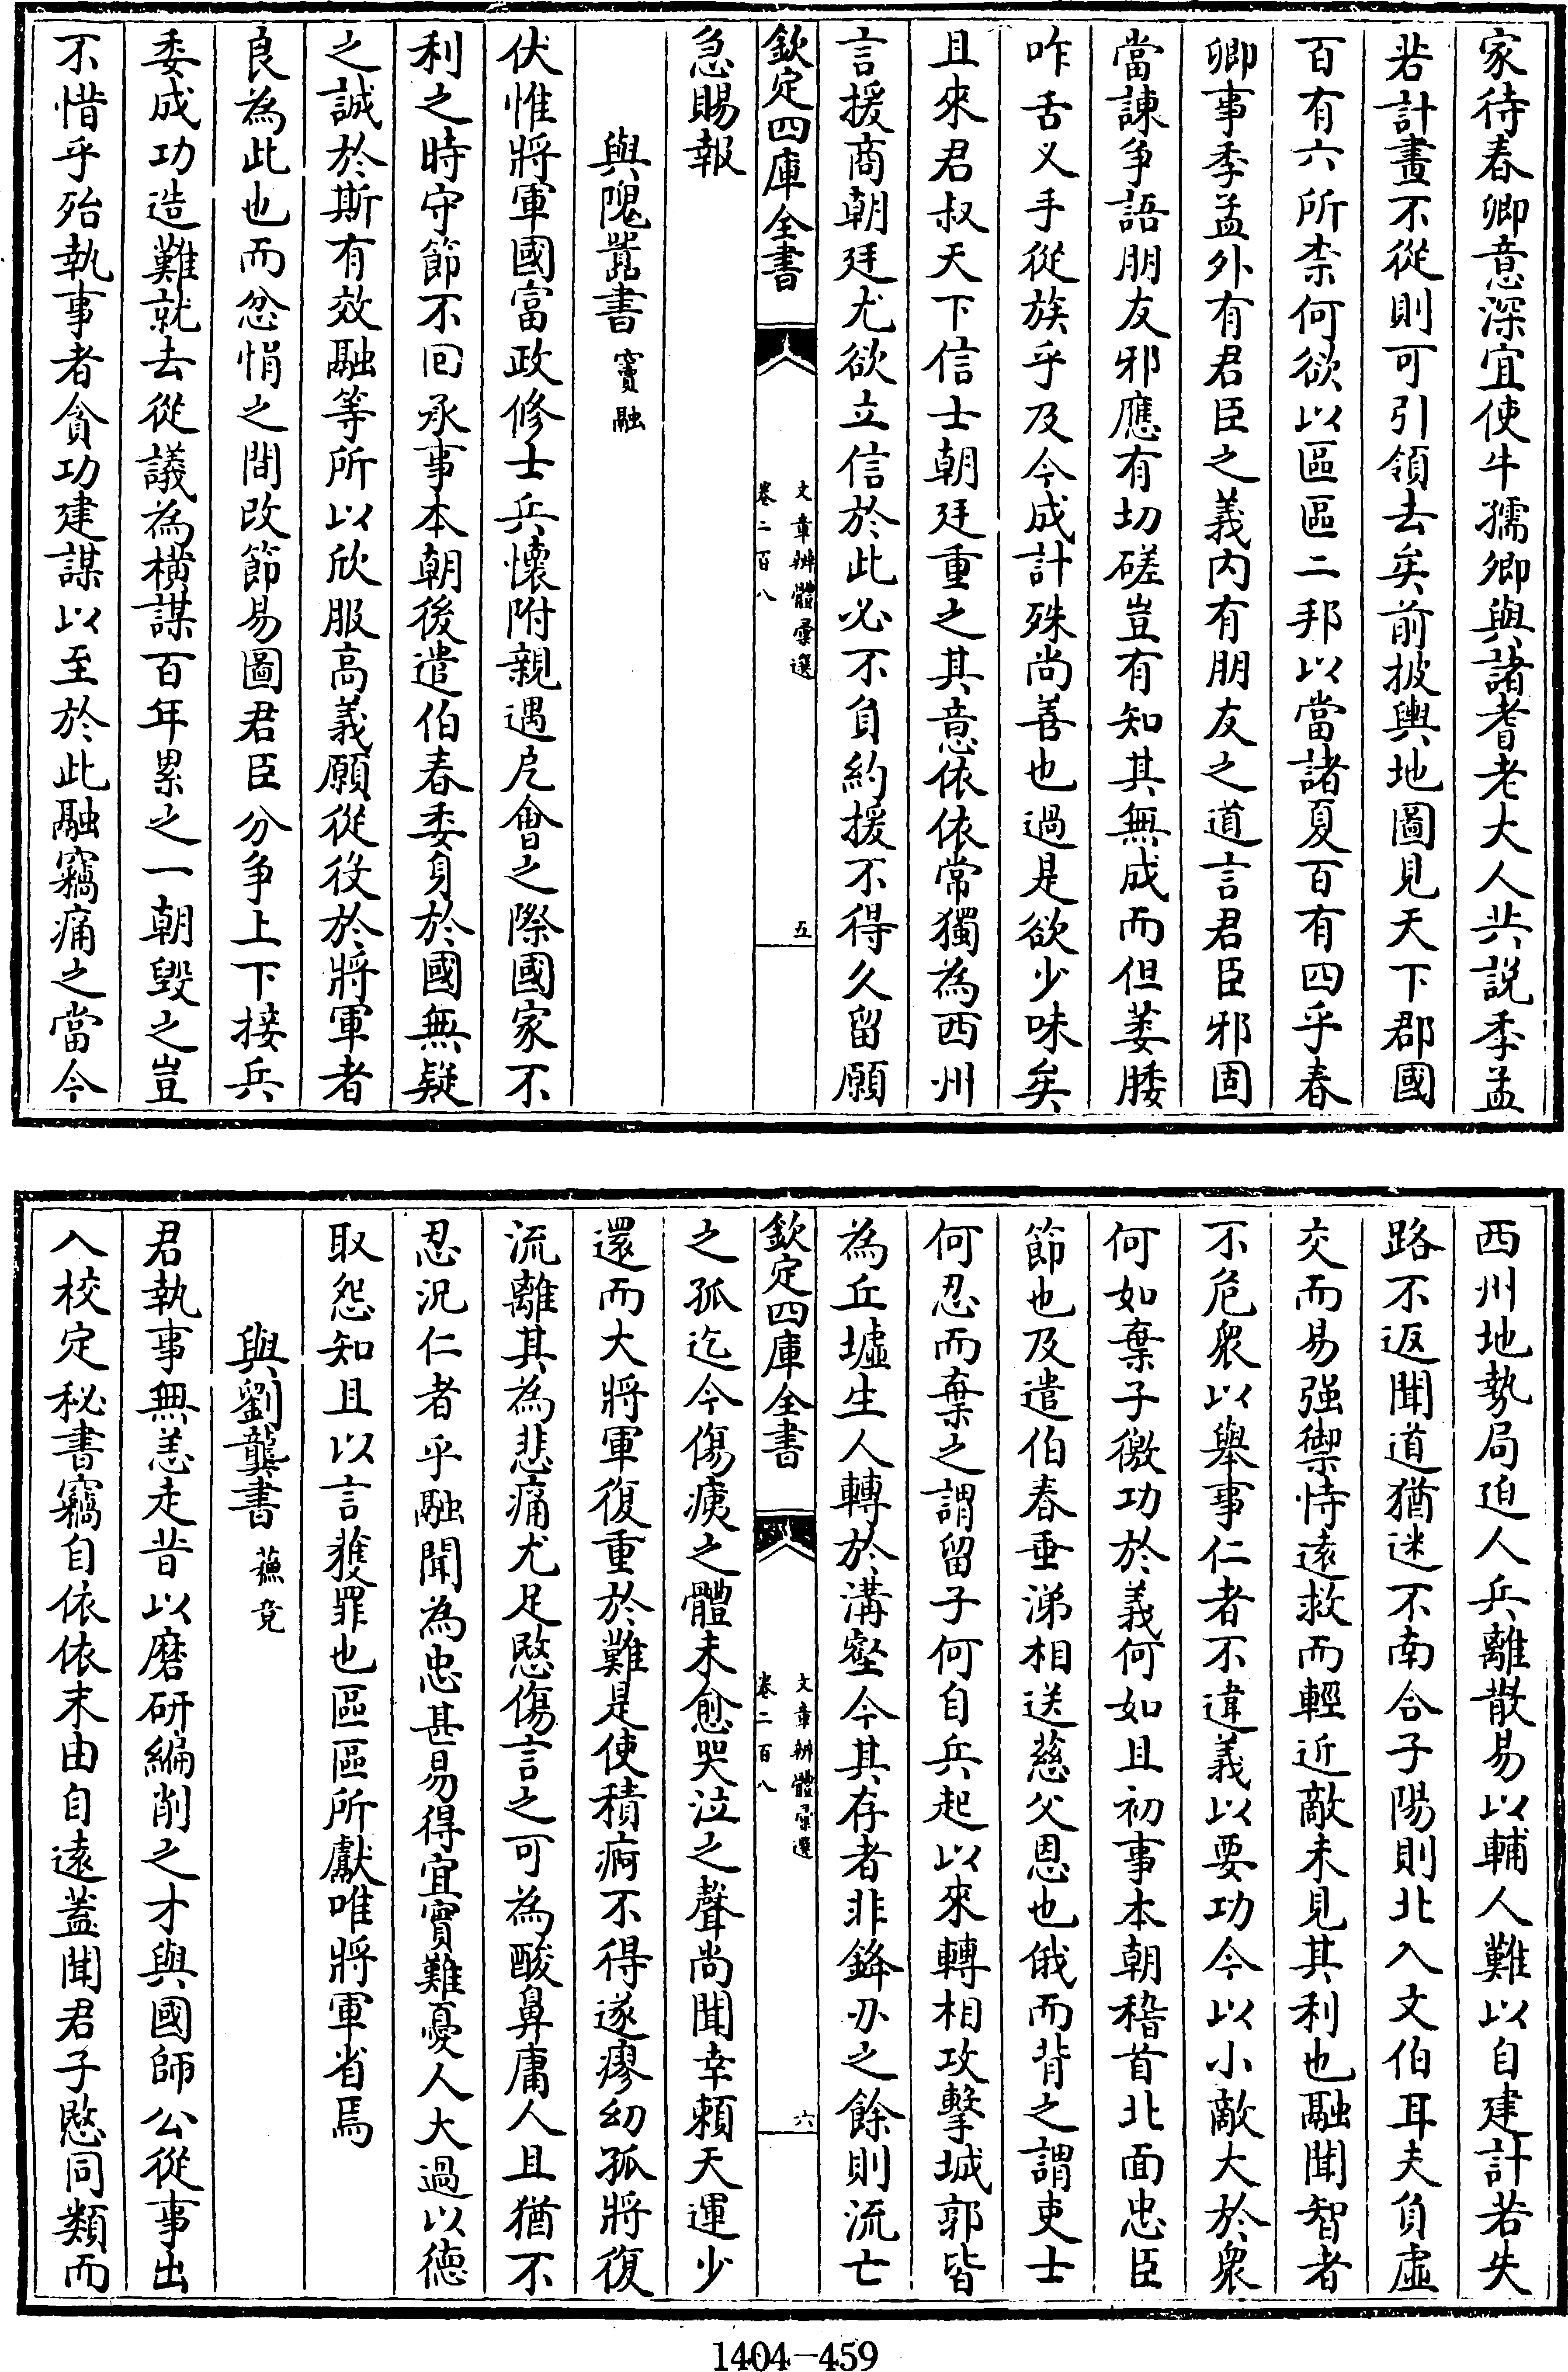 家待春卿意深宜使牛孺卿與諸耆老大人共說季孟
若計畫不從則可引領去矣前披輿地圖見天下郡國
百有六所柰何欲以區區二邦以當諸夏百有四乎春
卿事季孟外有君臣之義内有朋友之道言君臣邪固
當諫爭語朋友邪應有切磋豈有知其無成而但萎腇
咋舌义手從族乎及今成計殊尚善也過是欲少味矣
且來君叔天下信士朝廷重之其意依依常獨為西州
言援商朝廷尤欲立信於此必不負約援不得久留願
欽定四庫全書
文章辨體彙選
卷二百八
五
急賜報
與隗囂書 竇融
伏惟將軍國富政修士兵懷附親遇戹會之際國家不
利之時守節不囘承事本朝後遣伯春委身於國無疑
之誠於斯有效融等所以欣服高義願從役於將軍者
良為此也而忿悁之間改節易圖君臣分爭上下接兵
委成功造難就去從議為橫謀百年累之一朝毀之豈
不惜乎殆執事者貪功建謀以至於此融竊痛之當今
西州地勢局迫人兵離散易以輔人難以自建計若失
路不返聞道猶迷不南合子陽則北入文伯耳夫負虛
交而易强禦恃遠救而輕近敵未見其利也融聞智者
不危衆以舉事仁者不違義以要功今以小敵大於衆
何如棄子徼功於義何如且初事本朝稽首北面忠臣
節也及遣伯春垂涕相送慈父恩也俄而背之謂吏士
何忍而棄之謂留子何自兵起以來轉相攻擊城郭皆
為丘墟生人轉於溝壑今其存者非鋒刃之餘則流亡
欽定四庫全書
文章辨體彙選
卷二百八
六
之孤迄今傷痍之體未愈哭泣之聲尚聞幸賴天運少
還而大將軍復重於難是使積痾不得遂瘳幼孤將復
流離其為悲痛尤足愍傷言之可為酸鼻庸人且猶不
忍況仁者乎融聞為忠甚易得宜實難憂人大過以德
取怨知且以言獲罪也區區所獻唯將軍省焉
與劉龔書 蘇竟
君執事無恙走昔以磨研編削之才與國師公從事出
入校定秘書竊自依依末由自遠蓋聞君子愍同類而
1404-459